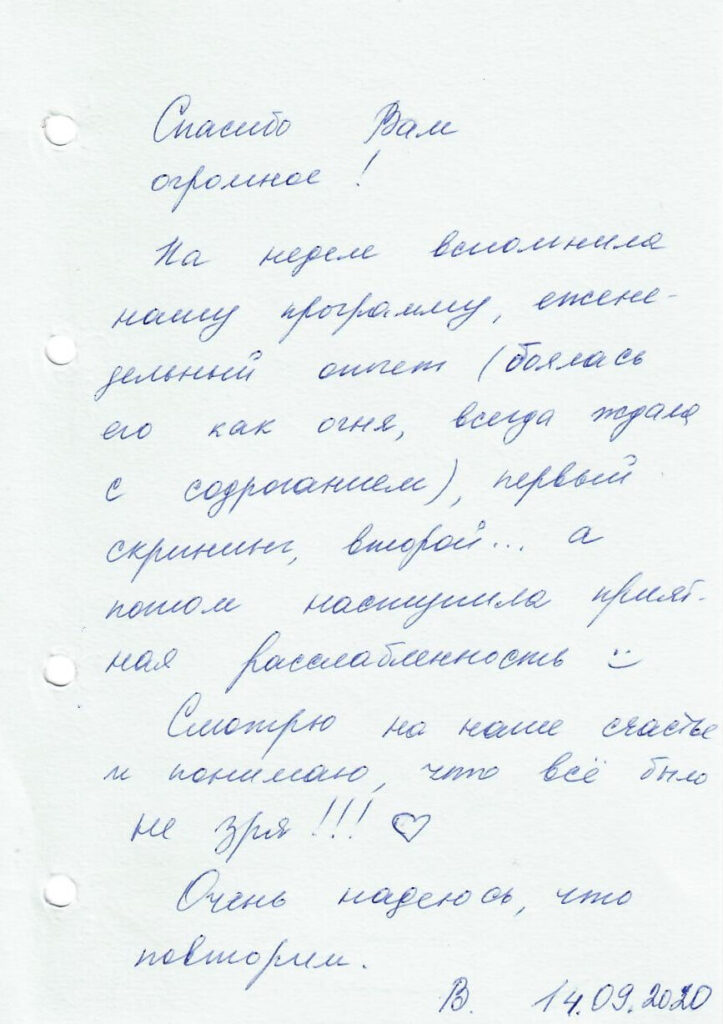 Спасибо Вам
огромное!
На неделе вспомнила
нашу программу, ежене-
дельный отчет (боялась
его как огня, всегда ждала
с содроганием), первый
скрининг, второй... а
потом наступила прият-
ная расслабленность :)
Смотрю на наше счастье
и понимаю, что всё было
не зря!!! ♡
Очень надеюсь, что
повторим.
В. 14.09.2020